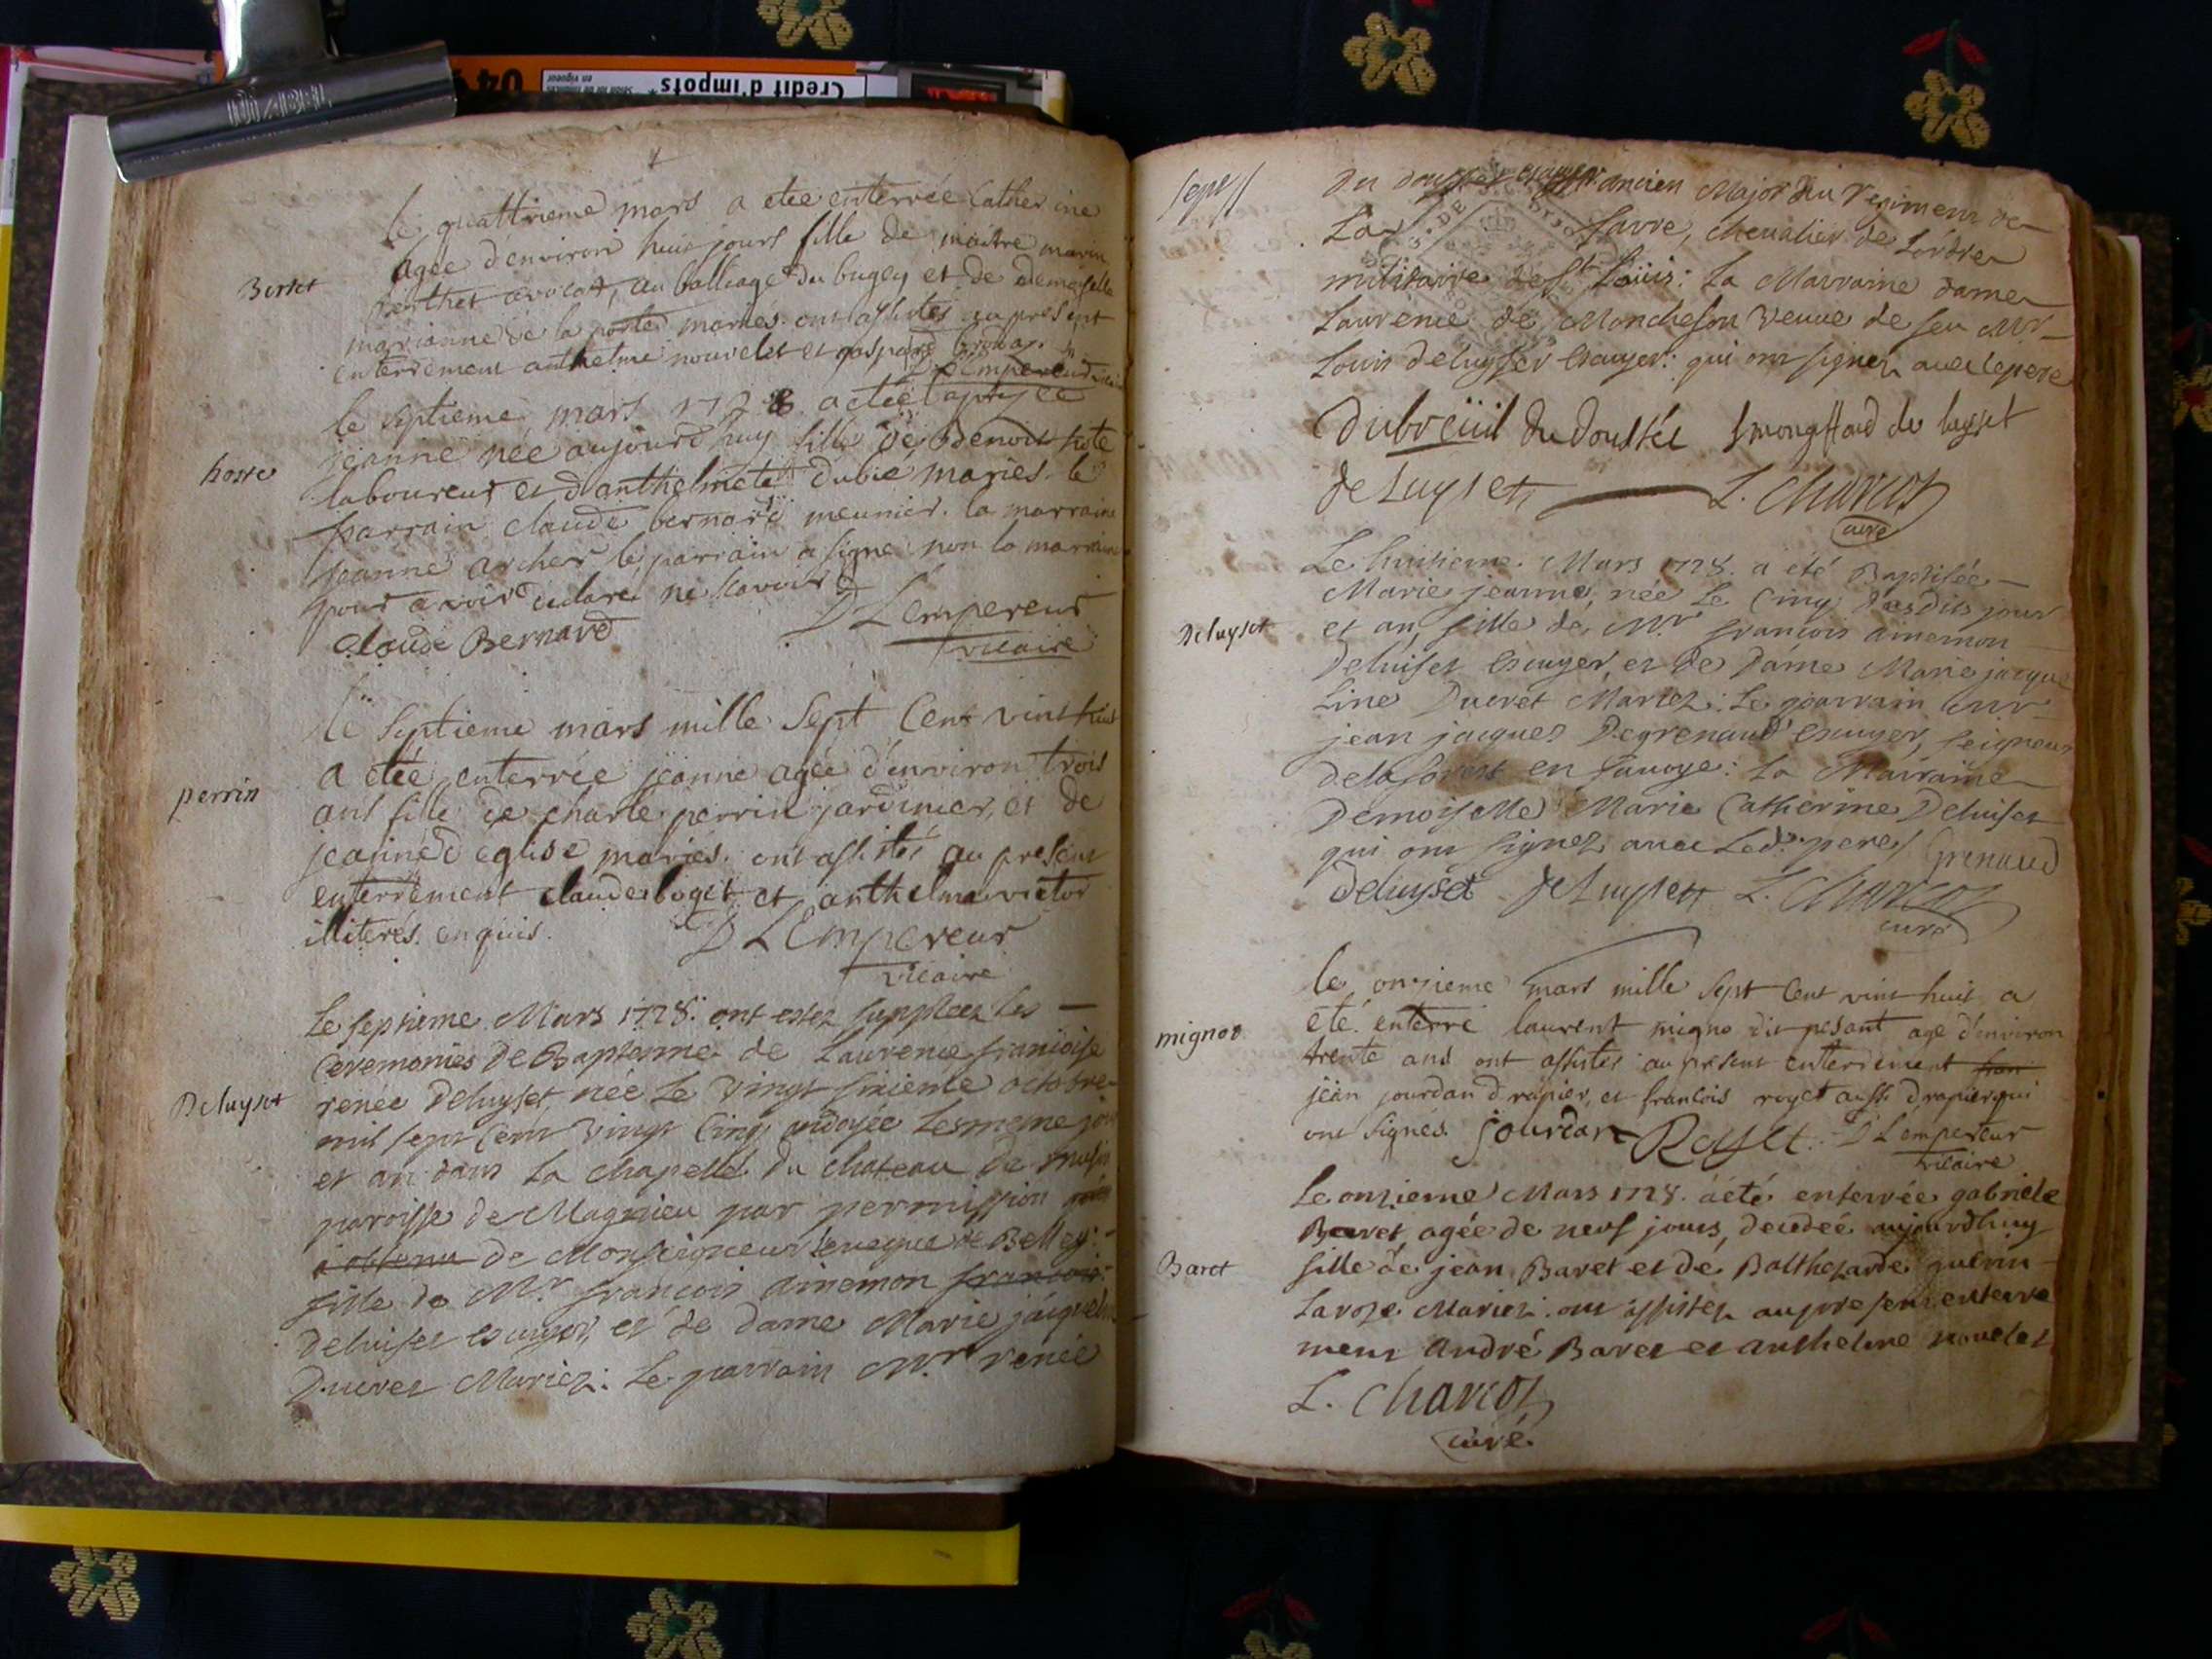 le quattrieme mars a etee enterrée Catherine
agée d'environ huit jours fille de maitre marin
Bertet
Berthet avocat, au balliage du bugey et de demoiselle
marianne de la porte mariés. ont assistés au present
enterrement anthelme nouvelet et gaspard
D Lempereur vicaire
le septieme mars 1728 a etée baptisee
jeanne née aujourd'huy fille de Benoit hote
hotte
laboureur et d'anthelmete Dubie mariés. le
parrain claude bernard meunier. la marraine
jeanne archer le parrain a signé non la marraine
pour avoir déclaré ne scavoir
D Lempereur
claude Bernard
vicaire
le septieme mars mille Sept Cent vint huit
a etée enterrée jeanne agée d'environ trois
perrin
ans fille de charle perrin jardinier, et de
jeanne d'eglise mariés. ont assistés au present
enterrement claude boget et anthelme victor
illiterés enquis.
D LEmpereur
vicaire
Le septieme Mars 1728. ont estez suppleez les
Ceremonies De Baptesme de Laurence francoise
Deluyset
renée Deluyset, née Le Vingt sixieme octobre
mil sept Cent Vingt Cinq, ondoyée Les meme jour
et an dans La chapelle du chateau de musin
paroisse de Magnieu par permission
a obtenu de Monseigneur Leveque de Belley.
fille de Mr. francois ainemon francois
Deluiset escuyer, et de dame Marie jacqueline
Ducret Mariez: Le parrain Mr. renée
sept
Du Doustet escuyer ancien Major du Regiment de
La Favre, chevalier de Lordre
militaire de St Loüis: La Marraine dame
Laurence de Moncheson Veuve de feu Mr
Louis deluyset Escuyer: qui ont signez avec le pere
Dubreüil du Doustét de luyset
de Luyset L. Charcot
curé
Le huitieme. Mars 1728. a été Baptisée
Marie jeanne, née Le Cinq desdits jour
Deluyset
et an, fille de, Mr francois ainemon
Deluiset Escuyer, et de Dame Marie jacque
Line Ducret Mariez: Le parrain Mr
jean jacques Degrenaud Escuyer, seigneur
delaforest en Savoye: La Marraine
Demoiselle Marie Catherine Deluiset
qui ont signez avec Led. pere Grenaud
deluyset deLuyset L. Charcot
curé
le onzieme mars mille sept Cent vint huit a
mignot
eté enterré laurent migno dit pesant agé d'environ
trente ans ont assistés au present enterrement
jean jourdan drapier, et francois royet aussi drapier qui
ont signés. Jourdan Royet. D Lempereur
vicaire
Le onzieme Mars 1728. a été enterrée gabriele
Baret agée de neuf jours, decedée aujourdhuy
Baret
fille de jean Baret et de Balthesarde guerin
Laroze. Mariez. ont assistez au present enterre
ment andré Baret et anthelme nouelet
L. Charcot
curé.
Credit d'impots